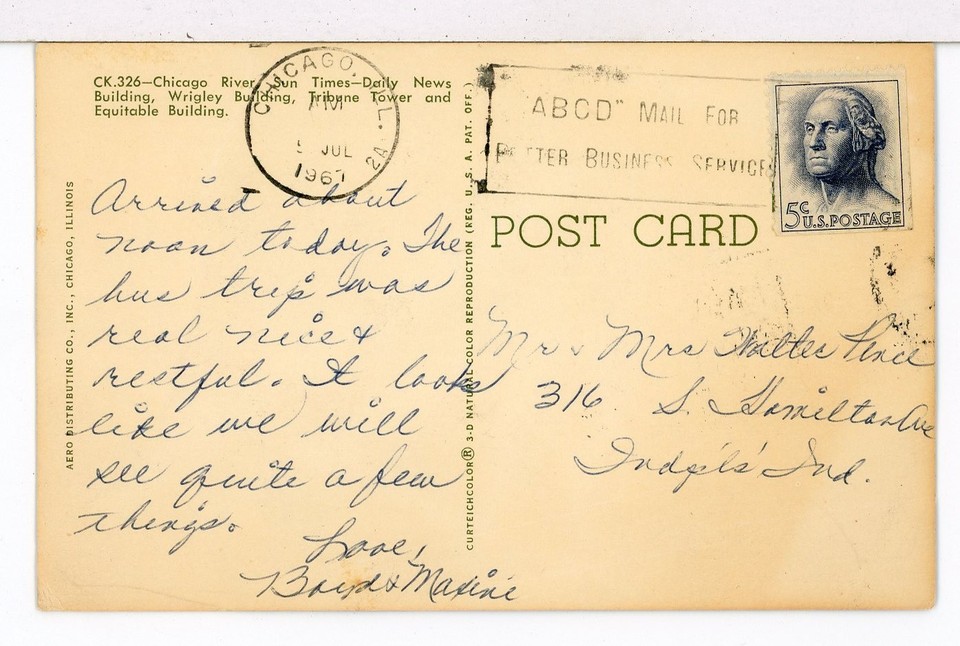 CK.326—Chicago River, Sun Times—Daily News
Building, Wrigley Building, Tribune Tower and
Equitable Building.
CHICAGO, ILL. 2A
AM
JUL
1967
"ABCD" MAIL FOR
BETTER BUSINESS SERVICES
5c U.S. POSTAGE
AERO DISTRIBUTING CO., INC., CHICAGO, ILLINOIS
CURTEICHCOLOR® 3-D NATURAL COLOR REPRODUCTION (REG. U. S. A. PAT. OFF.)
POST CARD
Arrived about
noon today. The
bus trip was
real nice &
restful. It looks
like we will
see quite a few
things.
Love,
Boyd & Maxine
Mr & Mrs Walter Pence
316 S. Hamilton Ave
Indpls' Ind.